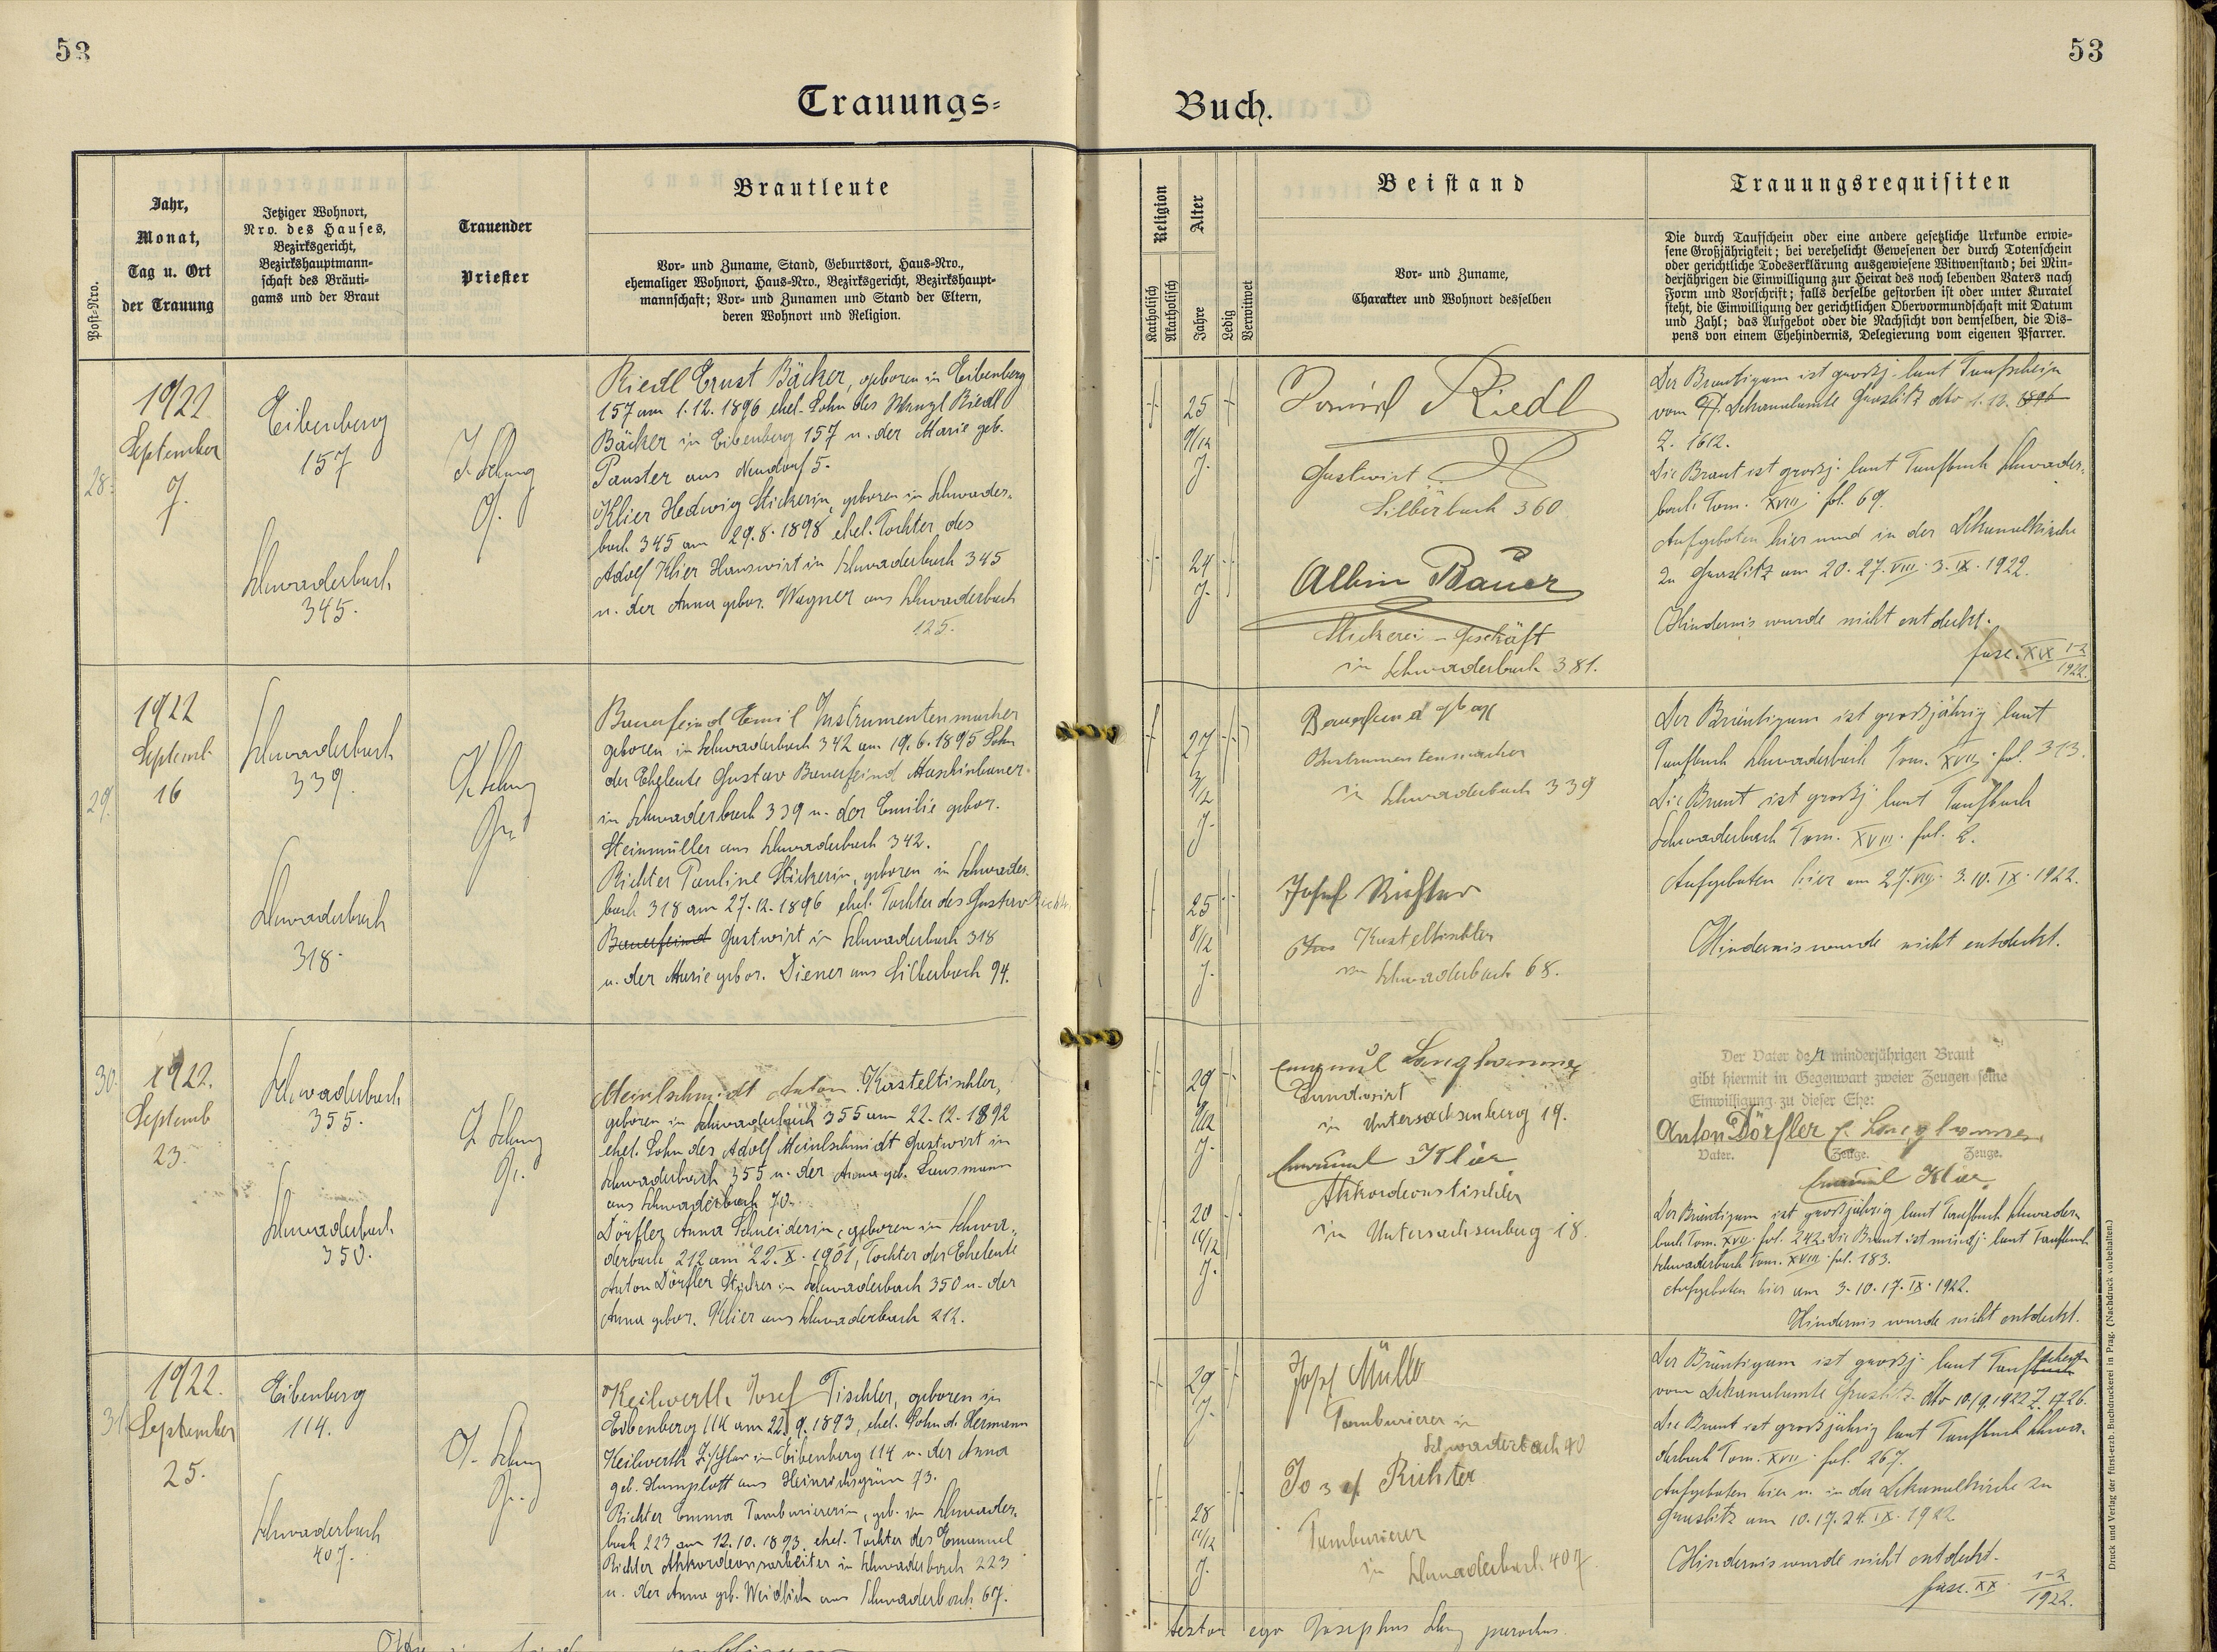 53
53
Trauungs=
Buch.
Post=Nro.
Jahr,
Monat,
Tag u. Ort
der Trauung
Jetziger Wohnort,
Nro. des Hauses,
Bezirksgericht,
Bezirkshauptmann=
schaft des Bräuti=
gams und der Braut
Trauender
Priester
Brautleute
Vor= und Zuname, Stand, Geburtsort, Haus=Nro.,
ehemaliger Wohnort, Haus=Nro., Bezirksgericht, Bezirkshaupt=
mannschaft; Vor= und Zunamen und Stand der Eltern,
deren Wohnort und Religion.
Religion
Katholisch
Akatholisch
Alter
Jahre
Ledig
Verwitwet
Beistand
Vor= und Zuname,
Charakter und Wohnort desselben
Trauungsrequisiten
Die durch Taufschein oder eine andere gesetzliche Urkunde erwie=
sene Großjährigkeit; bei verehelicht Gewesenen der durch Totenschein
oder gerichtliche Todeserklärung ausgewiesene Witwenstand; bei Min=
derjährigen die Einwilligung zur Heirat des noch lebenden Vaters nach
Form und Vorschrift; falls derselbe gestorben ist oder unter Kuratel
steht, die Einwilligung der gerichtlichen Obervormundschaft mit Datum
und Zahl; das Aufgebot oder die Nachsicht von demselben, die Dis=
pens von einem Ehehindernis, Delegierung vom eigenen Pfarrer.
28.
1922
September
7.
Eibenberg
157
Schwaderbach
345.
Riedl Ernst Bäcker, geboren in Eibenberg
157 am 1.12.1896 ehel. Sohn des Wenzl Riedl
Bäcker in Eibenberg 157 u. der Marie geb.
Pauster aus Neudorf 5.
Klier Hedwig Stickerin, geboren in Schwader=
bach 345 am 29.8.1898 ehel. Tochter des
Adolf Klier Hauswirt in Schwaderbach 345
u. der Anna gebor. Wagner aus Schwaderbach
125.
25
9/12
J.
24
J.
Riedl
Gastwirt
Silberbach 360
Albin Bauer
Stickerei-Geschäft
in Schwaderbach 381.
Der Bräutigam ist großj. laut Taufschein
vom Dekanalamte Graslitz dto 1.12. 1896
Z. 1612.
Die Braut ist großj. laut Taufbuch Schwader=
bach Tom. XVIII fol. 69.
Aufgeboten hier und in der Dekanalkirche
zu Graslitz am 20. 27. VIII. 3. IX. 1922.
Hindernis wurde nicht entdeckt.
fasc. XIX 1-2
1922.
29.
1922
Septemb
16
Schwaderbach
339.
Schwaderbach
318.
Bauerfeind Emil Instrumentenmacher
geboren in Schwaderbach 342 am 19.6.1895 Sohn
der Eheleute Gustav Bauerfeind Maschinbauer
in Schwaderbach 339 u. der Emilie gebor.
Steinmüller aus Schwaderbach 342.
Richter Pauline Stickerin, geboren in Schwader=
bach 318 am 27.12.1896 ehel. Tochter des Gustav Richter
Bauerfeind Gastwirt in Schwaderbach 318
u. der Marie gebor. Diener aus Silberbach 94.
27
3/12
J.
25
8/12
J.
Bauerfeind
Instrumentenmacher
in Schwaderbach 339
Josef Richter
Kasteltischler
in Schwaderbach 68.
Der Bräutigam ist großjährig laut
Taufbuch Schwaderbach Tom. XVII. fol. 313.
Die Braut ist großj. laut Taufbuch
Schwaderbach Tom. XVIII. fol. 2.
Aufgeboten hier am 27. VIII. 3. 10. IX. 1922.
Hindernis wurde nicht entdeckt.
30.
1922.
Septemb
23.
Schwaderbach
355.
Schwaderbach
350.
Meinlschmidt Anton Kasteltischler,
geboren in Schwaderbach 355 am 22.12.1892
ehel. Sohn des Adolf Meinlschmidt Gastwirt in
Schwaderbach 355 u. der Anna geb. Lausmann
aus Schwaderbach 70.
Dörfler Anna Schneiderin, geboren in Schwa=
derbach 212 am 22. X. 1901, Tochter der Eheleute
Anton Dörfler Sticker in Schwaderbach 350 u. der
Anna gebor. Klier aus Schwaderbach 212.
29
9/12
J.
20
11/12
J.
Emanuel Langhammer
Landwirt
in Untersachsenberg 19.
Emanuel Klier
Akkordeontischler
in Untersachsenberg 18.
Der Vater der minderjährigen Braut
gibt hiermit in Gegenwart zweier Zeugen seine
Einwilligung zu dieser Ehe:
Anton Dörfler E. Langhammer
Vater. Zeuge. Zeuge.
Emanuel Klier.
Der Bräutigam ist großjährig laut Taufbuch Schwader=
bach Tom. XVII. fol. 242. Die Braut ist mindj. laut Taufbuch
Schwaderbach Tom. XVIII. fol. 183.
Aufgeboten hier am 3. 10. 17. IX. 1922.
Hindernis wurde nicht entdeckt.
31.
1922.
September
25.
Eibenberg
114.
Schwaderbach
407.
Keilwerth Josef Tischler, geboren in
Eibenberg 114 am 22.9.1893, ehel. Sohn d. Hermann
Keilwerth Tischler in Eibenberg 114 u. der Anna
geb. Humplott aus Heinrichsgrün 73.
Richter Emma Tambouriererin, geb. in Schwader=
bach 223 am 12.10.1893. ehel. Tochter des Emanuel
Richter Akkordeonarbeiter in Schwaderbach 223
u. der Anna geb. Weidlich aus Schwaderbach 67.
29
J.
28
11/12
J.
Josef Müller
Tambourierer in
Schwaderbach 40
Josef Richter
Tambourierer
in Schwaderbach 407.
Der Bräutigam ist großj. laut Taufschein
vom Dekanalamte Graslitz dto 10./9.1922 Z. 1726.
Die Braut ist großjährig laut Taufbuch Schwa=
derbach Tom. XVII. fol. 267.
Aufgeboten hier u. in der Dekanalkirche zu
Graslitz am 10. 17. 24. IX. 1922.
Hindernis wurde nicht entdeckt.
fasc. XX. 1-2
1922.
testor ego Josephus parochus.
Druck und Verlag der fürst=erzb. Buchdruckerei in Prag. (Nachdruck vorbehalten.)